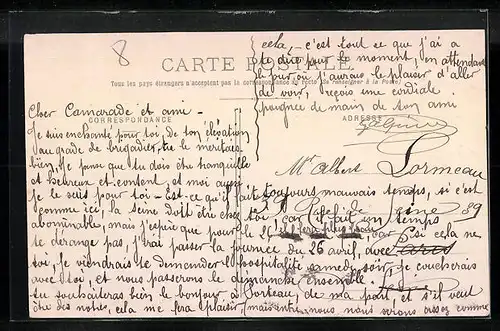 8
cela, - c'est tout ce que j'ai à
te dire pour le moment, en attendant
le jour où j'aurais le plaisir d'aller
te voir, reçois une cordiale
poignée de main de ton ami
CARTE POSTALE
Tous les pays étrangers n'acceptent pas la correspondance au recto (se renseigner à la Poste)
CORRESPONDANCE
ADRESSE
Cher Camarade et ami -
Je suis enchanté pour toi, de ton élévation
au grade de brigadier, tu le méritais
bien, je pense que tu dois être tranquille
et heureux et content, et moi aussi
je le suis pour toi - Est-ce qu'il fait toujours mauvais temps, si c'est
comme ici, la Seine doit être chez toi, car il fait un temps
abominable, mais j'espère que pour le
te dérange pas, j'irai passer la journée du 26 avril, avec
toi, je viendrais te demander l'hospitalité samedi soir, je coucherais
avec toi, et nous passerons le dimanche ensemble.
tu souhaiteras bien le bonjour à Porteau, de ma part, et s'il veut
être des nôtres, cela me fera plaisir,
Mr Albert Lormeau
89